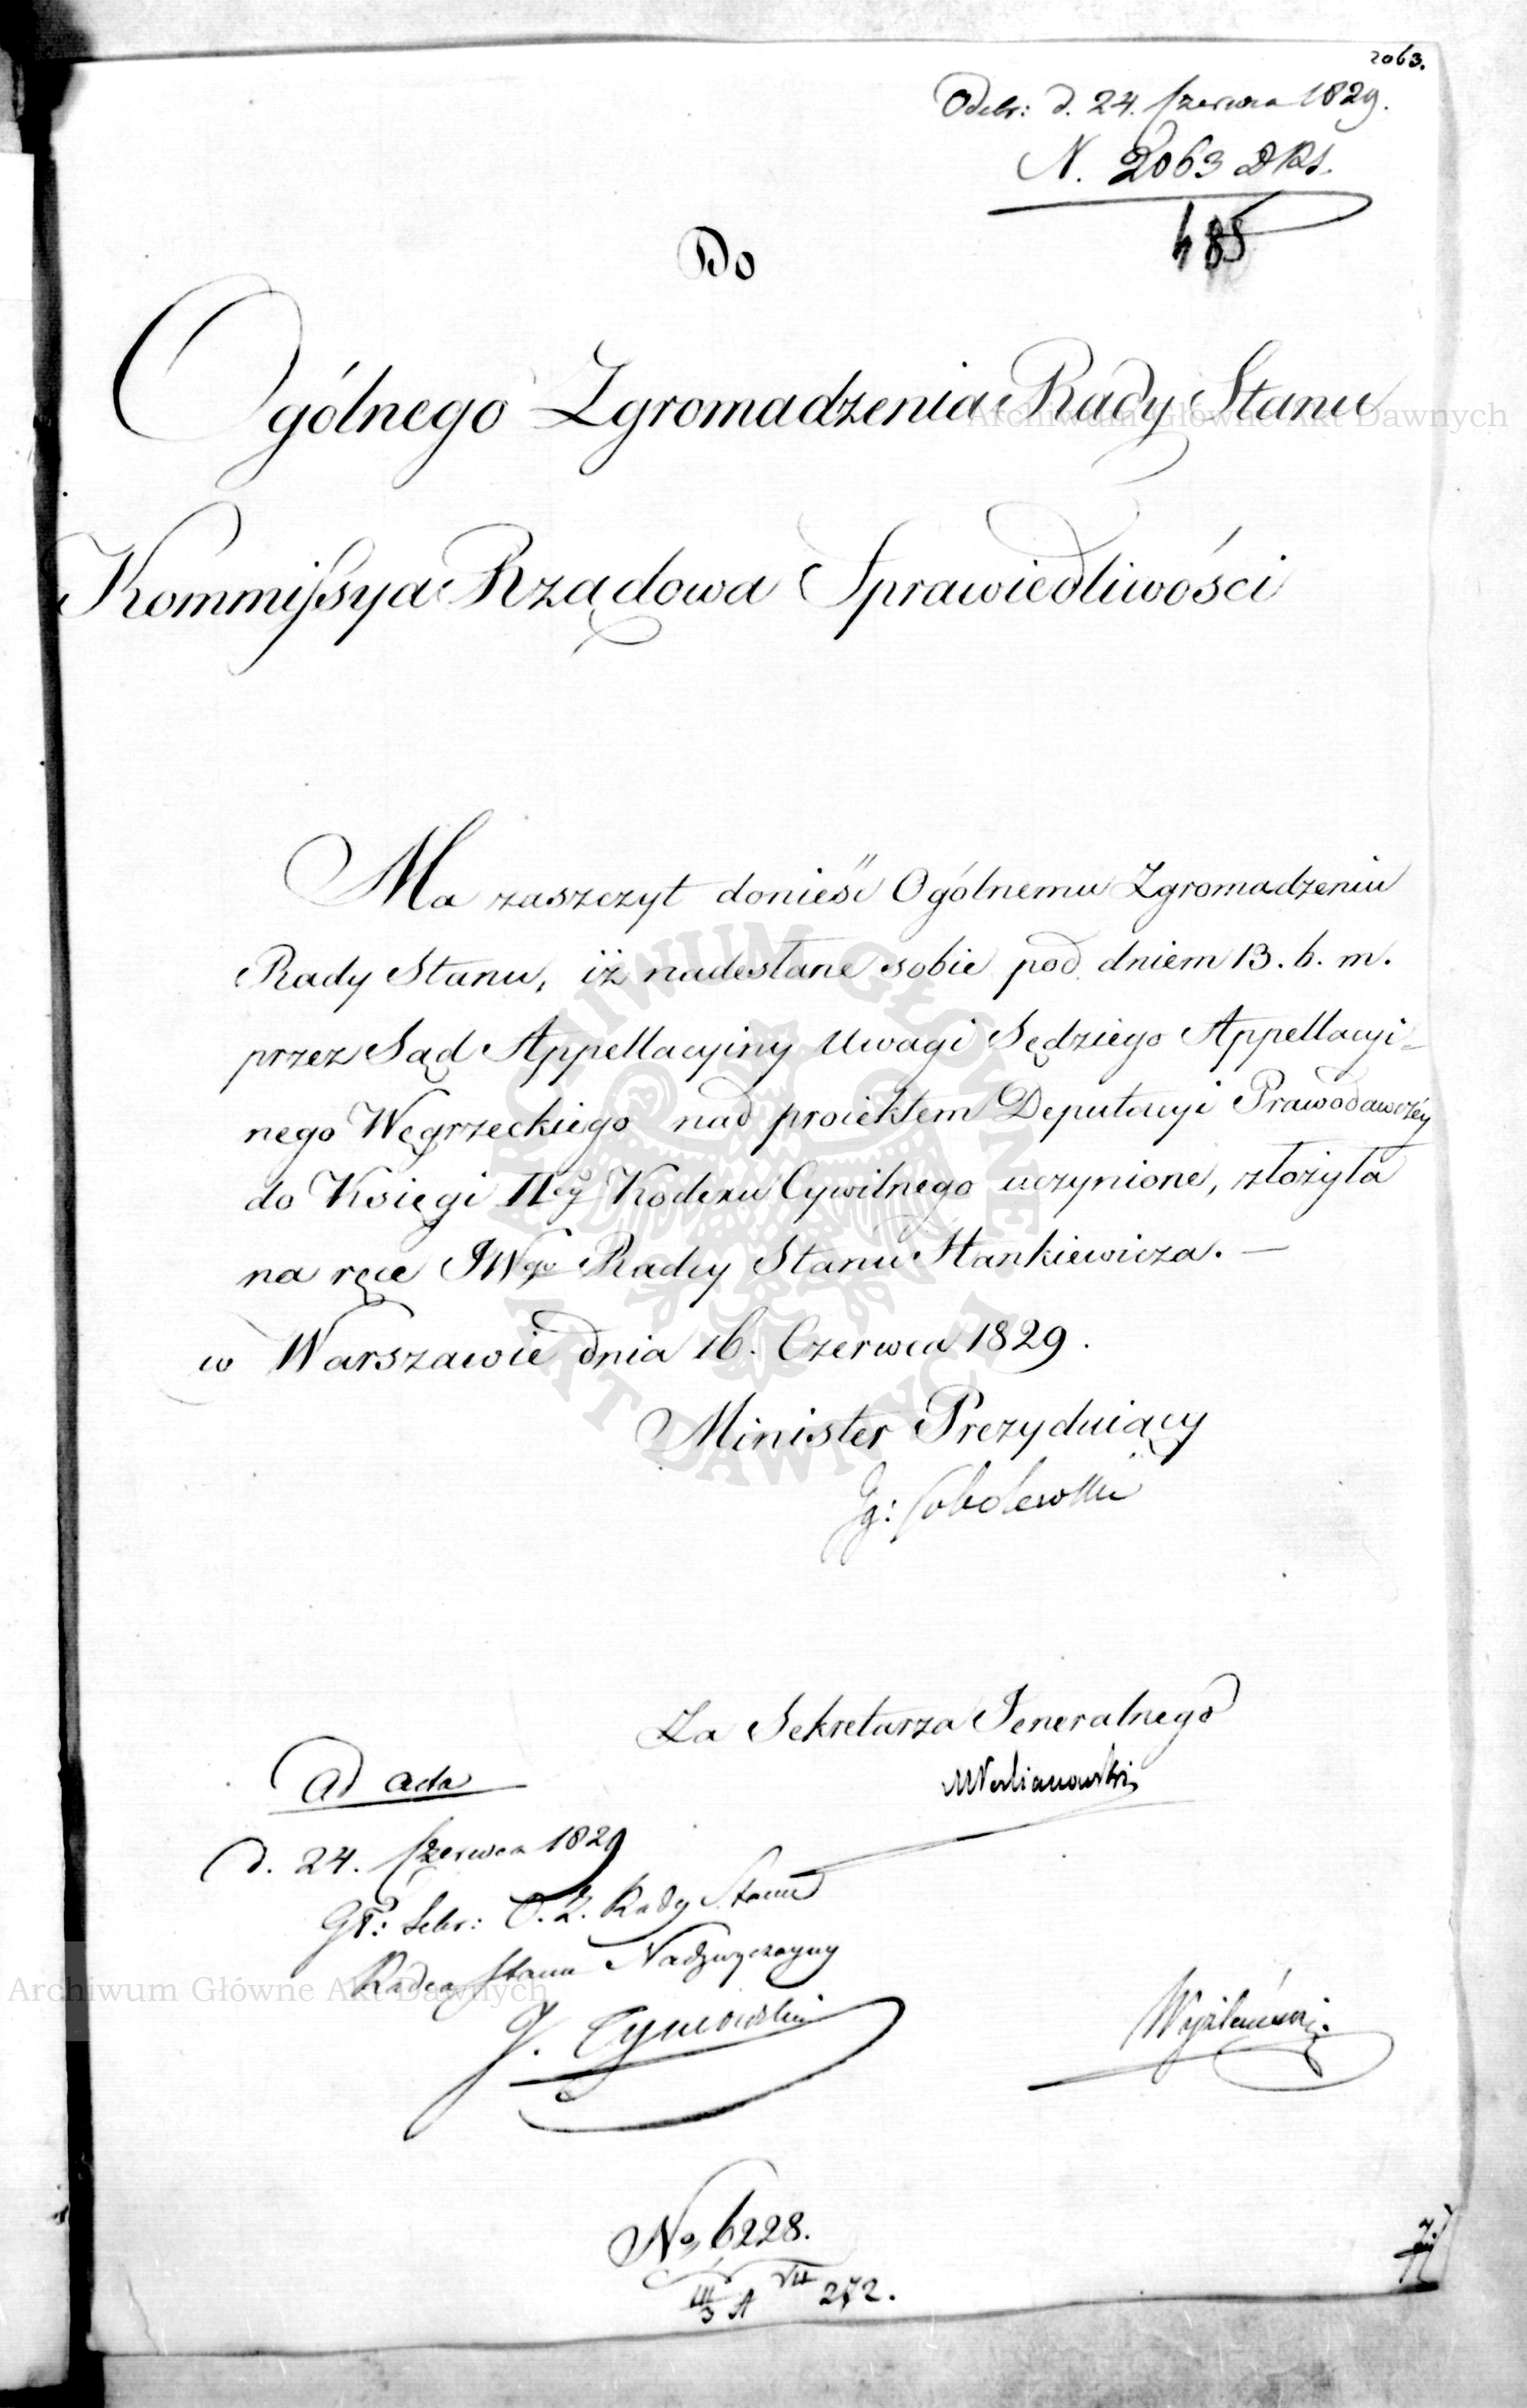 2063.
Odebr: d. 24. Czerwca 1829.
N. 2063 DRS.
485
Do
Ogólnego Zgromadzenia Rady Stanu
Kommissya Rządowa Sprawiedliwości
Ma zaszczyt donieść Ogólnemu Zgromadzeniu
Rady Stanu, iż nadesłane sobie pod dniem 13. b. m.
przez Sąd Appellacyiny Uwagi Sędziego Appellacyi-
nego Węgrzeckiego nad proiektem Deputacyi Prawodawczéy
do Księgi IIey Kodexu Cywilnego uczynione, złożyła
na ręce JWgo Radcy Stanu Hankiewicza. —
w Warszawie dnia 16. Czerwca 1829.
Minister Prezyduiący
Ig: Sobolewski
Za Sekretarza Jeneralnego
ad acta
d. 24. Czerwca 1829
Sekr: O. Z. Rady Stanu
Radca Stanu Nadzwyczayny
J. Tymowski
No 6228.
III/3 A VII 272.
Archiwum Główne Akt Dawnych
Archiwum Główne Akt Dawnych
ARCHIWUM GŁÓWNE AKT DAWNYCH